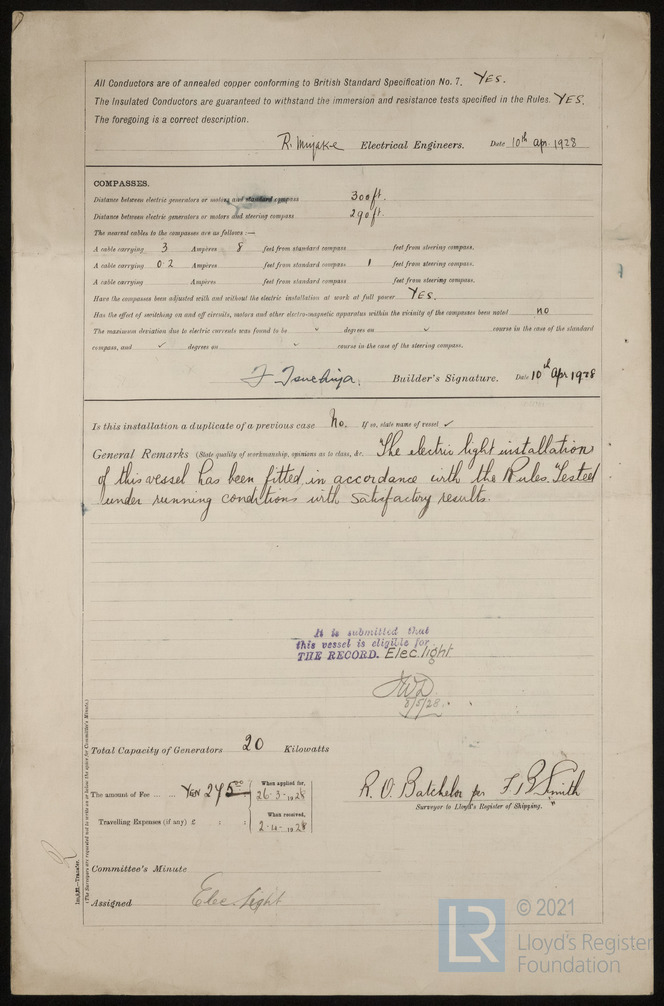 All Conductors are of annealed copper conforming to British Standard Specification No. 7. YES.
The Insulated Conductors are guaranteed to withstand the immersion and resistance tests specified in the Rules. YES.
The foregoing is a correct description.
R. Miyake Electrical Engineers. Date 10th Apr. 1928
COMPASSES.
Distance between electric generators or motors and standard compass 300 ft.
Distance between electric generators or motors and steering compass 290 ft.
The nearest cables to the compasses are as follows :—
A cable carrying 3 Ampères 8 feet from standard compass feet from steering compass.
A cable carrying 0.2 Ampères feet from standard compass 1 feet from steering compass.
A cable carrying Ampères feet from standard compass feet from steering compass.
Have the compasses been adjusted with and without the electric installation at work at full power YES.
Has the effect of switching on and off circuits, motors and other electro-magnetic apparatus within the vicinity of the compasses been noted no
The maximum deviation due to electric currents was found to be degrees on course in the case of the standard
compass, and degrees on course in the case of the steering compass.
Tsuchiya. Builder's Signature. Date 10th Apr 1928
Is this installation a duplicate of a previous case No. If so, state name of vessel ✓
General Remarks (State quality of workmanship, opinions as to class, &c. The electric light installation
of this vessel has been fitted in accordance with the Rules. Tested
under running conditions with satisfactory results.
It is submitted that
this vessel is eligible for
THE RECORD. Elec. light
8/5/28.
Total Capacity of Generators 20 Kilowatts
The amount of Fee ... ... YEN 245 When applied for, 26.3.1928
Travelling Expenses (if any) £ : : When received, 1928
R. O. Batchelor per F B Smith
Surveyor to Lloyd's Register of Shipping.
Committee's Minute
Assigned Elec. light
(The Surveyors are requested not to write on or below the space for Committee's Minute.)
© 2021
LR Lloyd's Register
Foundation